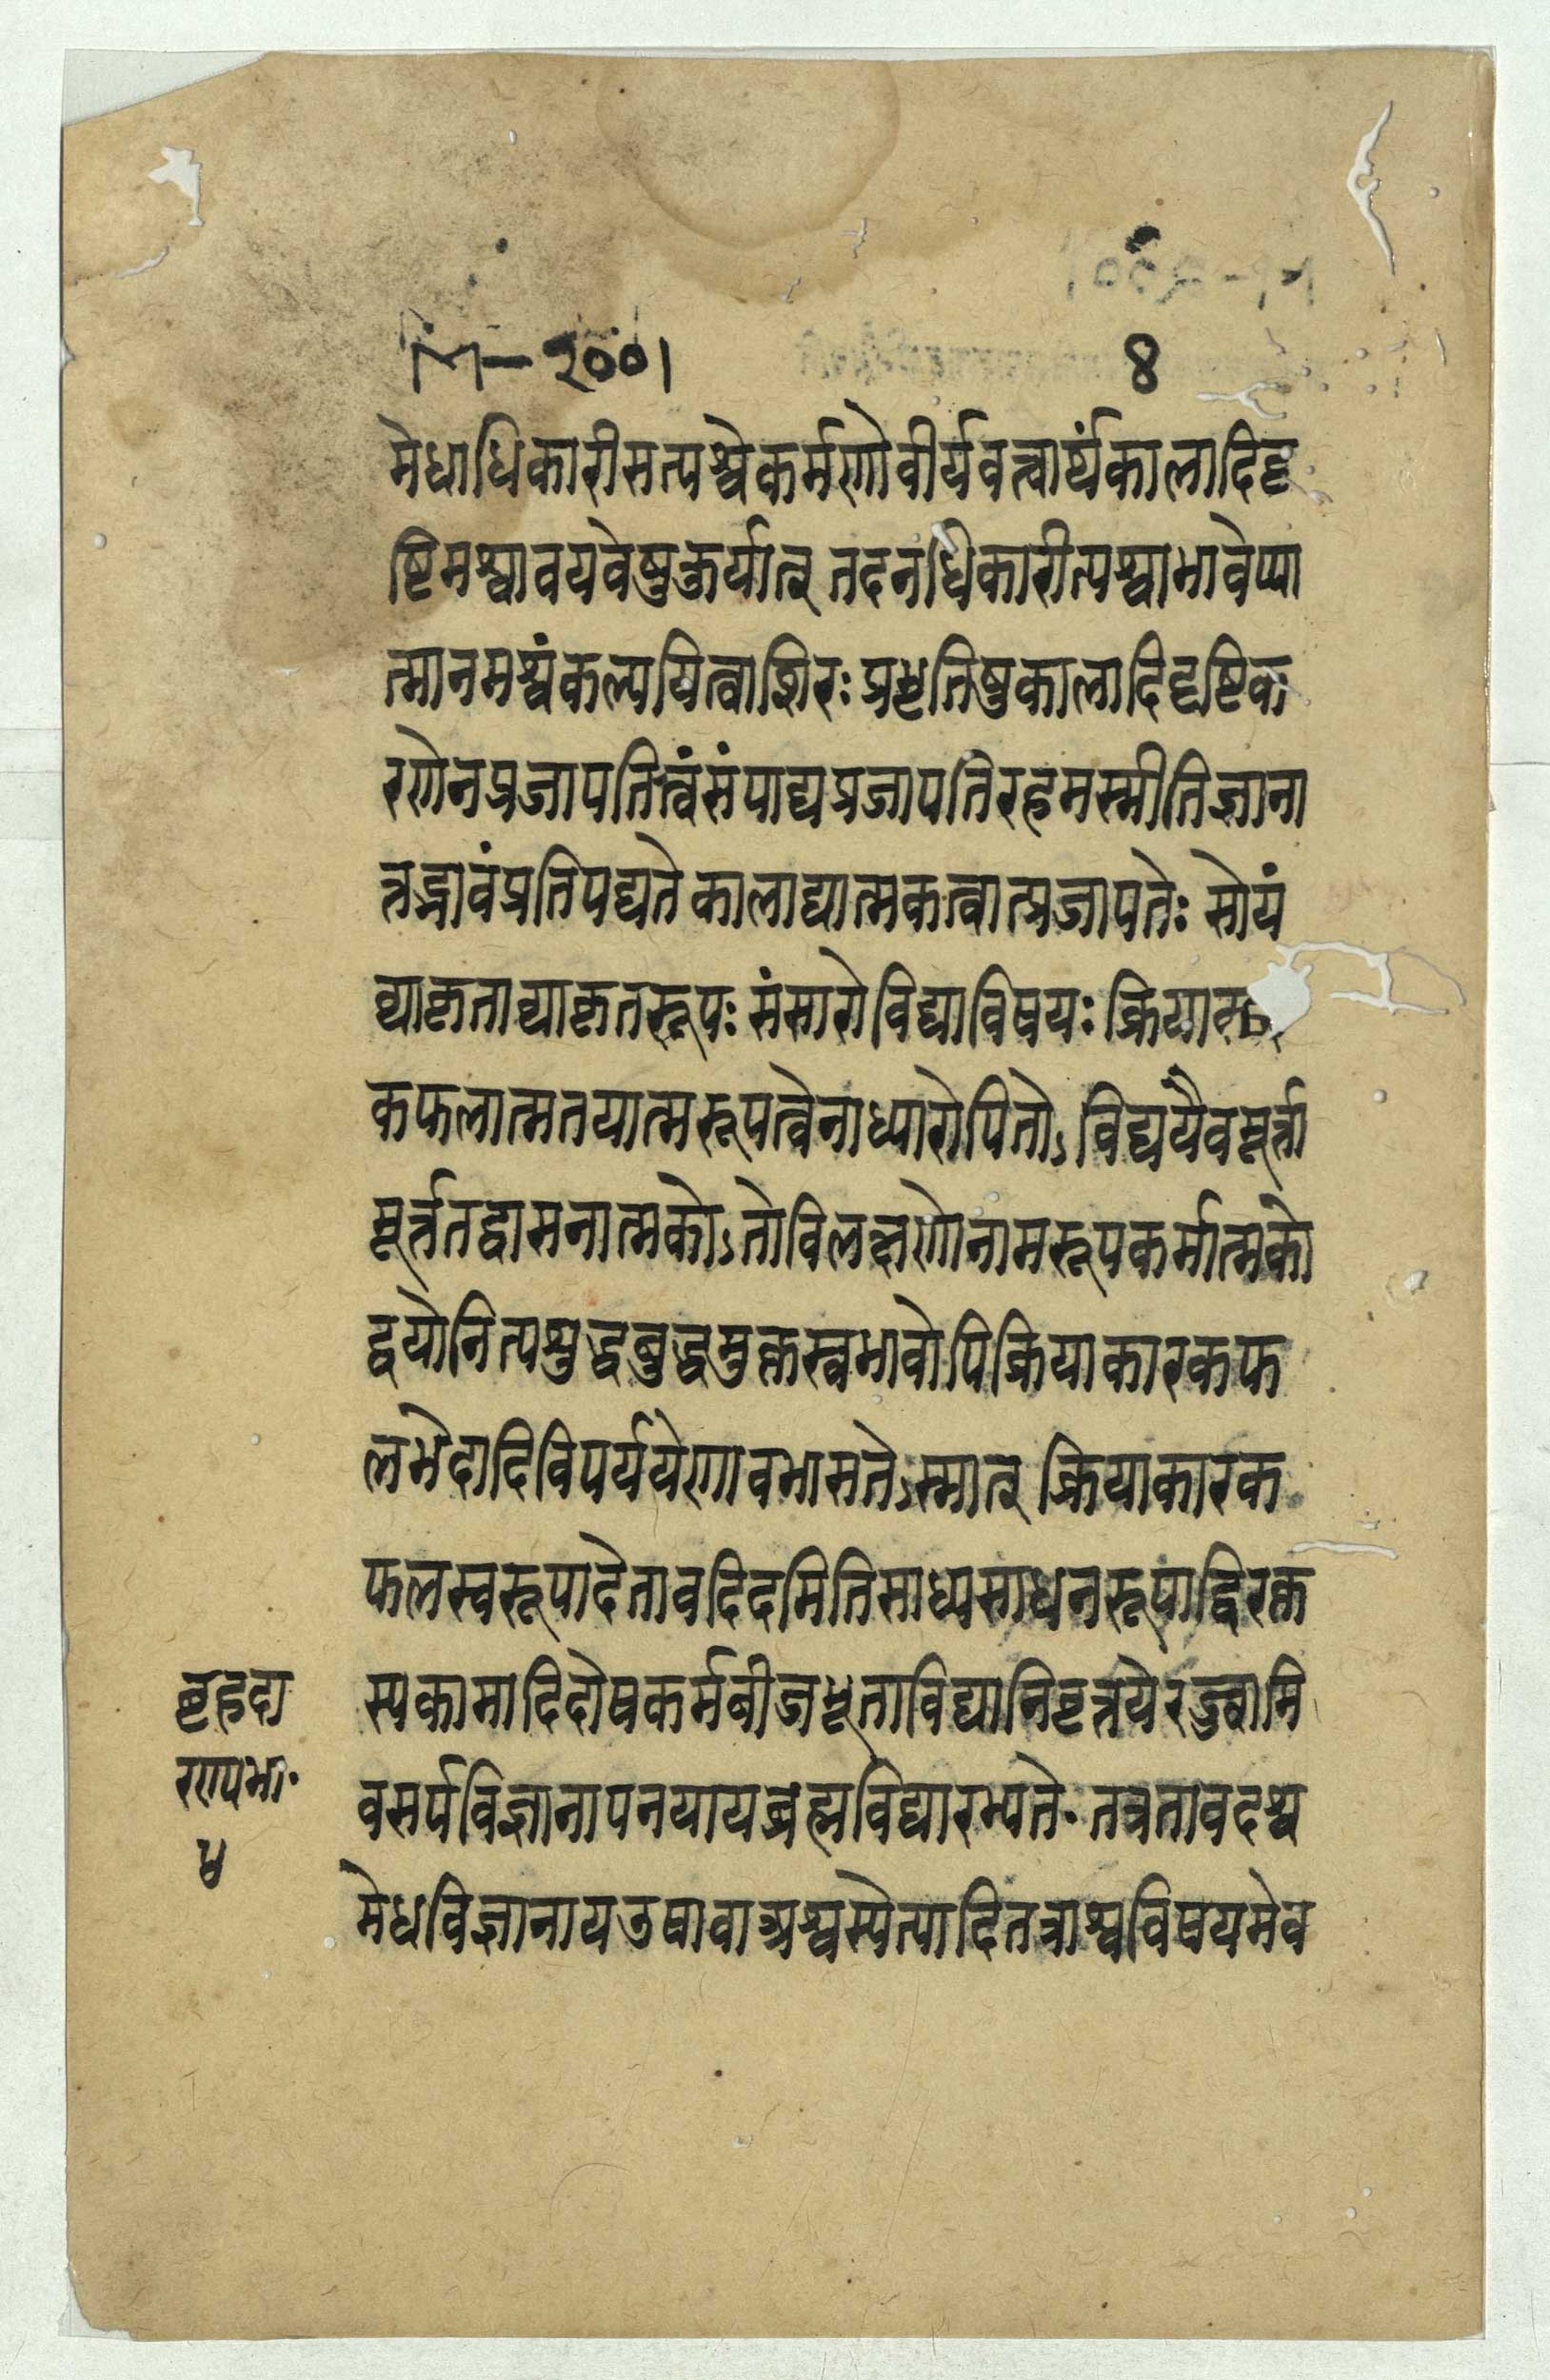 M-२००१
४
मेधाधिकारीसत्यश्वेकर्मणोवीर्यवत्त्वार्थंकालादिदृ
ष्टिमश्वावयवेषुकुर्यात् तदनधिकारीत्यश्वाभावेप्या
त्मानमश्वंकल्पयित्वाशिरःप्रभृतिषुकालादिदृष्टिक
रणेनप्रजापतित्वंसंपाद्यप्रजापतिरहमस्मीतिज्ञाना
त्तद्भावंप्रतिपद्यते कालाद्यात्मकत्वात्प्रजापतेः सोयं
व्याकृताव्याकृतरूपः संसारोविद्याविषयः क्रियाकार
कफलात्मतयात्मरूपत्वेनाध्यारोपितोऽविद्ययैवमूर्त्ता
मूर्त्ततद्वासनात्मकोऽतोविलक्षणोनामरूपकर्मात्मको
द्वयोनित्यशुद्धबुद्धमुक्तस्वभावोपिक्रियाकारकफ
लभेदादिविपर्ययेणावभासतेऽस्मात् क्रियाकारक
फलस्वरूपादेतावदिदमितिसाध्यसाधनरूपाद्विरक्त
स्यकामादिदोषकर्मबीजभूताविद्यानिवृत्तयेरज्ज्वामि
वसर्पविज्ञानापनयायब्रह्मविद्यारभ्यते· तत्रतावदश्व
मेधविज्ञानायउषावाअश्वस्येत्यादितत्राश्वविषयमेव
बृहदा
रण्यभा·
४